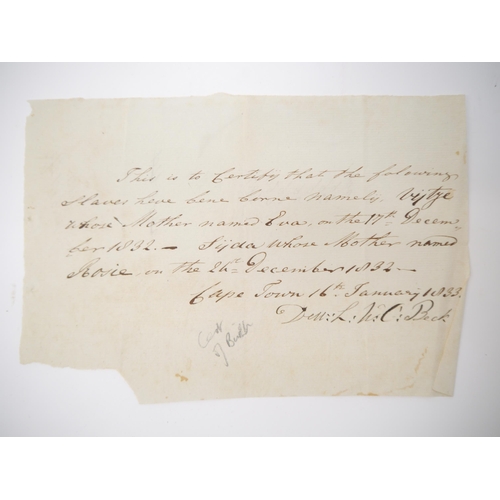 This is to Certify that the folowing
Slaves have bene borne namely, Vijtje
whose Mother named Eva, on the 17th Decem=
ber 1832. — Sijda whose Mother named
Rosie on the 26th December 1832 —
Cape Town 16th January 1833.
L: W: C: Beck
Cert
of Birth